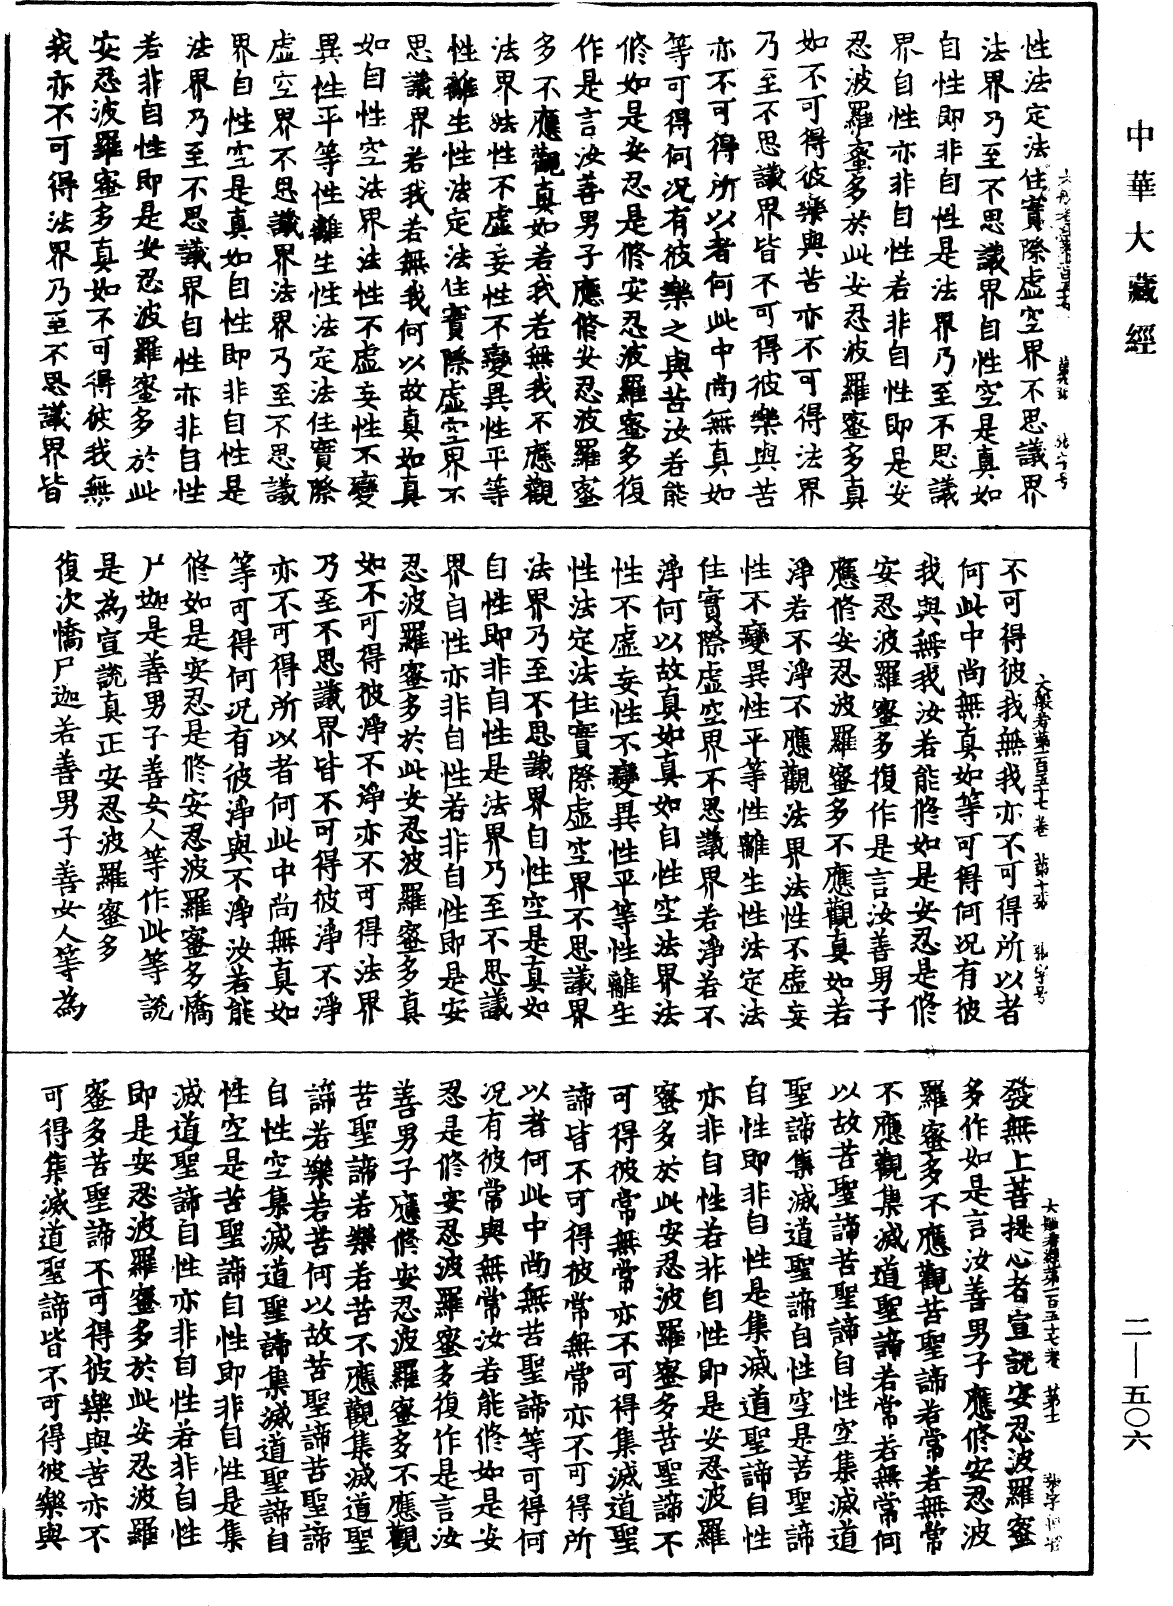 中華大藏經
性法定法住實際虛空界不思議界
法界乃至不思議界自性空是真如
自性即非自性是法界乃至不思議
界自性亦非自性若非自性即是安
忍波羅蜜多於此安忍波羅蜜多真
如不可得彼樂與苦亦不可得法界
乃至不思議界皆不可得彼樂與苦
亦不可得所以者何此中尚無真如
等可得何況有彼樂之與苦汝若能
修如是安忍是修安忍波羅蜜多復
作是言汝善男子應修安忍波羅蜜
多不應觀真如若我若無我不應觀
法界法性不虛妄性不變異性平等
性離生性法定法住實際虛空界不
思議界若我若無我何以故真如真
如自性空法界法性不虛妄性不變
異性平等性離生性法定法住實際
虛空界不思議界法界乃至不思議
界自性空是真如自性即非自性是
法界乃至不思議界自性亦非自性
若非自性即是安忍波羅蜜多於此
安忍波羅蜜多真如不可得彼我無
我亦不可得法界乃至不思議界皆
大般若第一百五十七卷 第十張 張字号
不可得彼我無我亦不可得所以者
何此中尚無真如等可得何況有彼
我與無我汝若能修如是安忍是修
安忍波羅蜜多復作是言汝善男子
應修安忍波羅蜜多不應觀真如若
淨若不淨不應觀法界法性不虛妄
性不變異性平等性離生性法定法
住實際虛空界不思議界若淨若不
淨何以故真如真如自性空法界法
性不虛妄性不變異性平等性離生
性法定法住實際虛空界不思議界
法界乃至不思議界自性空是真如
自性即非自性是法界乃至不思議
界自性亦非自性若非自性即是安
忍波羅蜜多於此安忍波羅蜜多真
如不可得彼淨不淨亦不可得法界
乃至不思議界皆不可得彼淨不淨
亦不可得所以者何此中尚無真如
等可得何況有彼淨與不淨汝若能
修如是安忍是修安忍波羅蜜多憍
尸迦是善男子善女人等作此等說
是為宣說真正安忍波羅蜜多
復次憍尸迦若善男子善女人等為
大般若經第一百五十七卷 第十一 張字号
發無上菩提心者宣說安忍波羅蜜
多作如是言汝善男子應修安忍波
羅蜜多不應觀苦聖諦若常若無常
不應觀集滅道聖諦若常若無常何
以故苦聖諦苦聖諦自性空集滅道
聖諦集滅道聖諦自性空是苦聖諦
自性即非自性是集滅道聖諦自性
亦非自性若非自性即是安忍波羅
蜜多於此安忍波羅蜜多苦聖諦不
可得彼常無常亦不可得集滅道聖
諦皆不可得彼常無常亦不可得所
以者何此中尚無苦聖諦等可得何
況有彼常與無常汝若能修如是安
忍是修安忍波羅蜜多復作是言汝
善男子應修安忍波羅蜜多不應觀
苦聖諦若樂若苦不應觀集滅道聖
諦若樂若苦何以故苦聖諦苦聖諦
自性空集滅道聖諦集滅道聖諦自
性空是苦聖諦自性即非自性是集
滅道聖諦自性亦非自性若非自性
即是安忍波羅蜜多於此安忍波羅
蜜多苦聖諦不可得彼樂與苦亦不
可得集滅道聖諦皆不可得彼樂與
二—五〇六